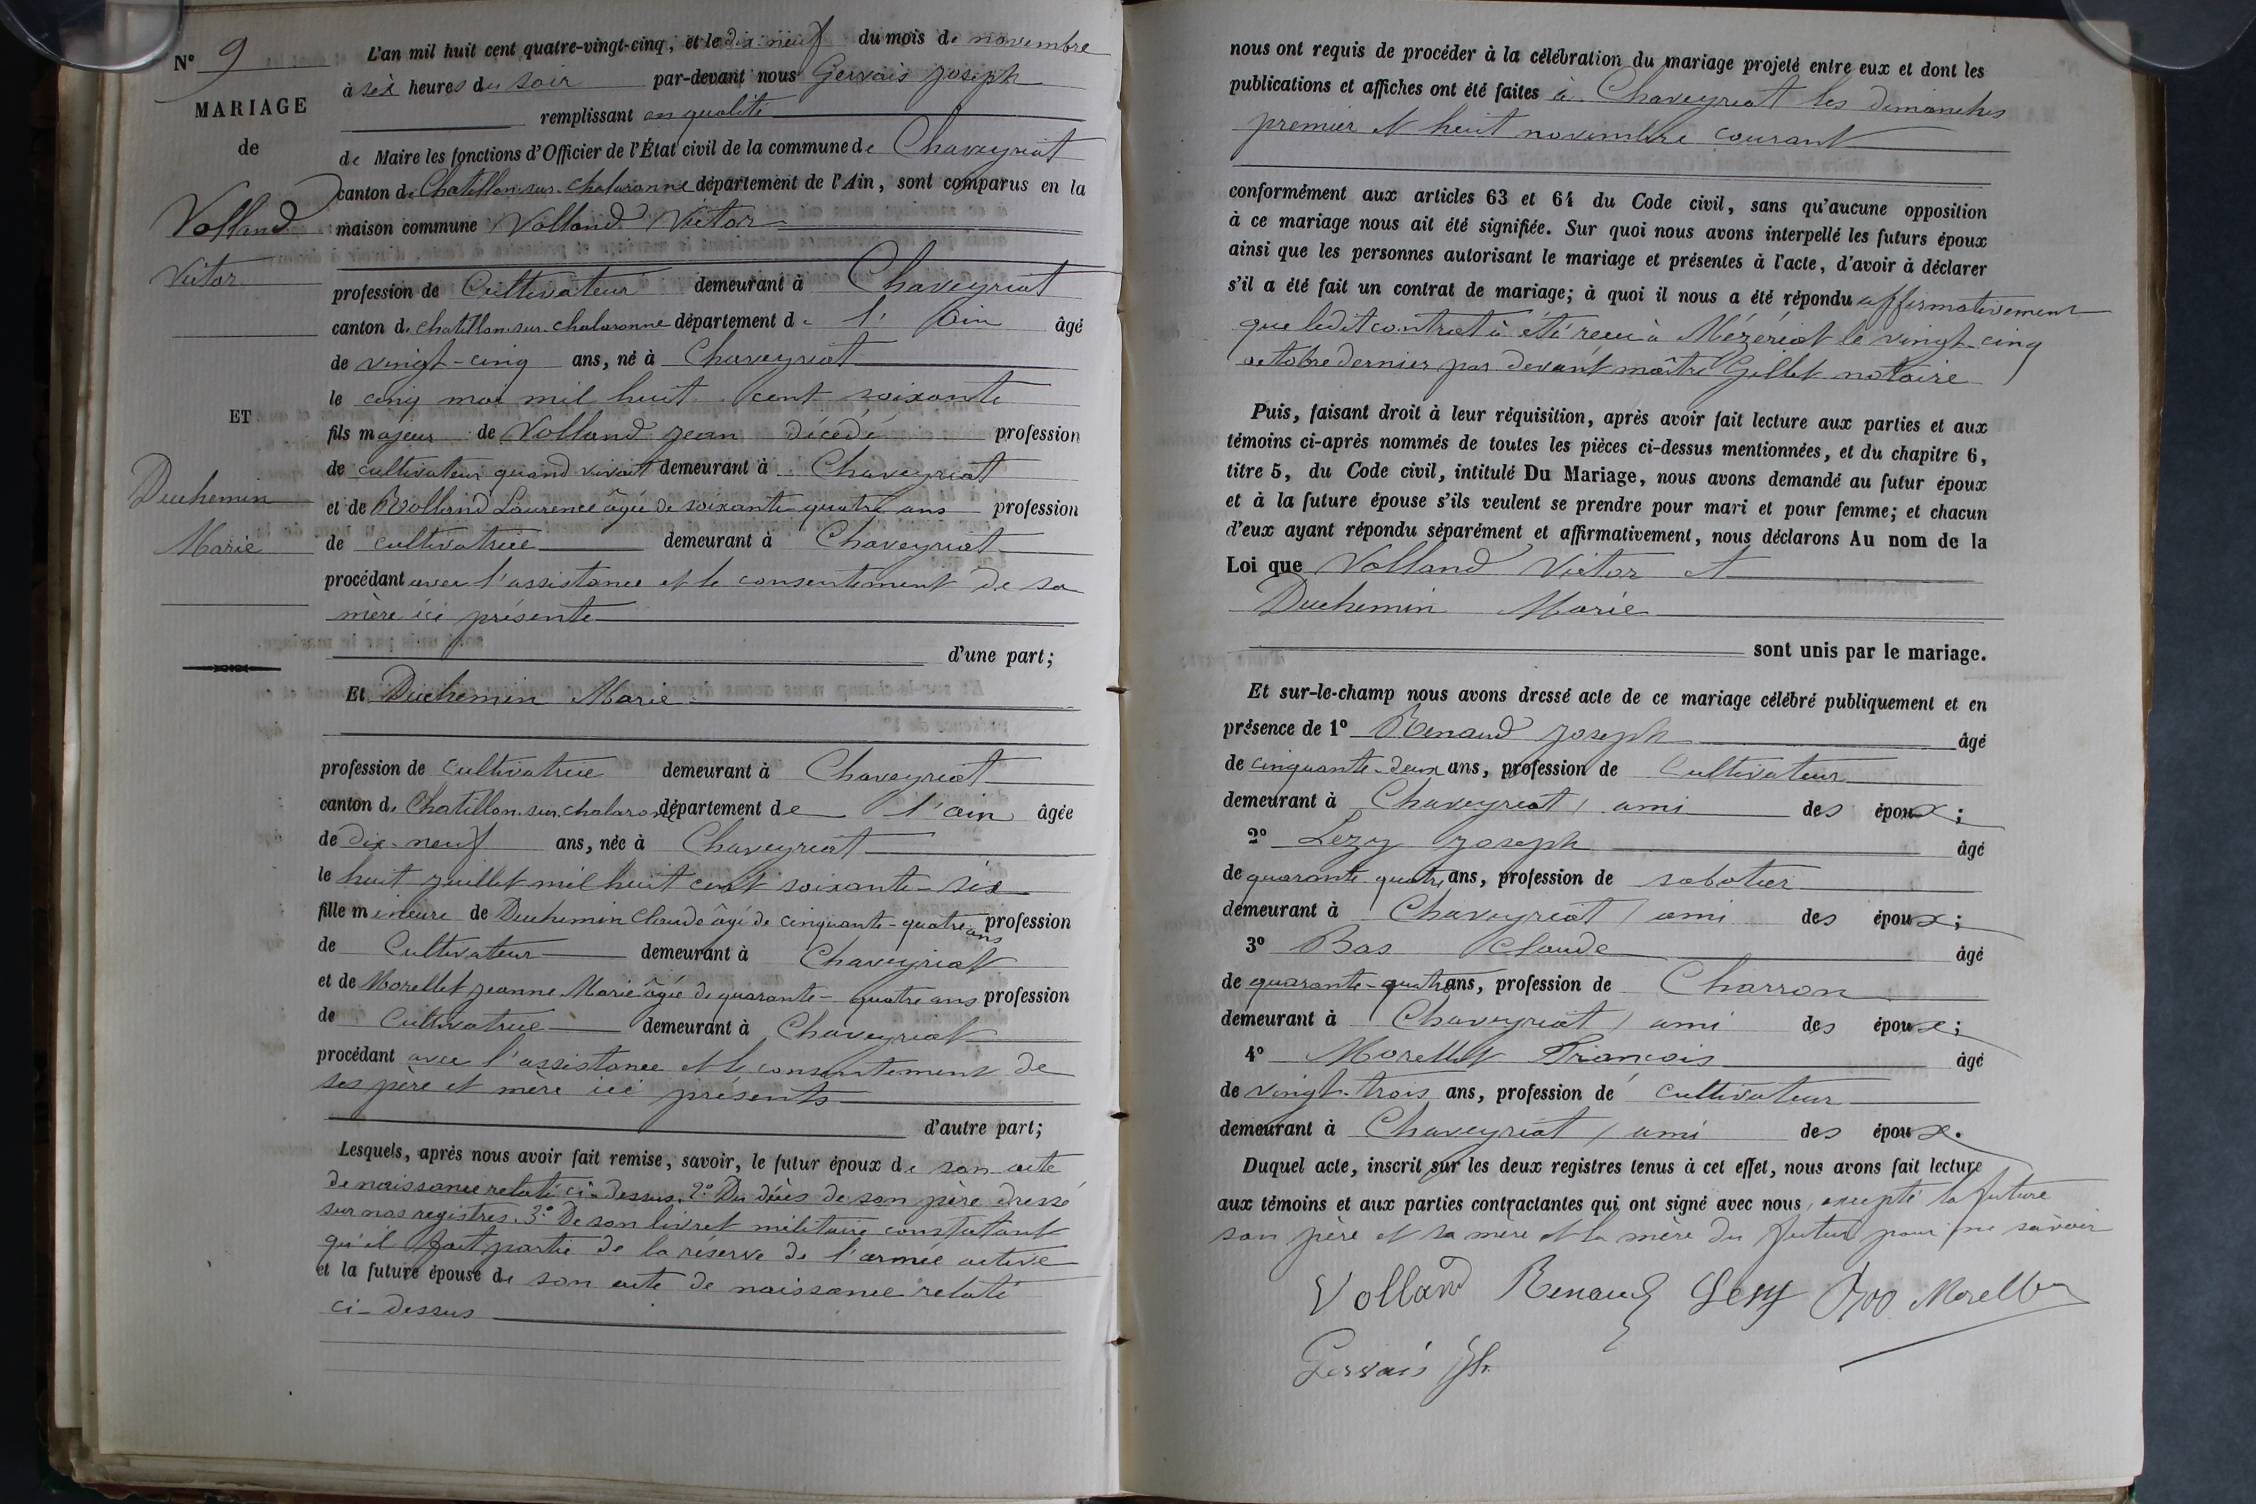 N° 9
MARIAGE
de
Volland
Victor
ET
Duchemin
Marie
L'an mil huit cent quatre-vingt-cinq, et le dix neuf du mois de novembre
à six heures du soir par-devant nous Gervais Joseph
remplissant en qualité
de Maire les fonctions d'Officier de l'État civil de la commune de Chaveyriat
canton de Chatillon-sur-chalaronne département de l'Ain, sont comparus en la
maison commune Volland Victor
profession de Cultivateur demeurant à Chaveyriat
canton de chatillon-sur-chalaronne département de l'ain âgé
de vingt-cinq ans, né à Chaveyriat
le cinq mai mil huit cent soixante
fils majeur de Volland jean décédé profession
de cultivateur quand vivait demeurant à Chaveyriat
et de Rolland Laurence âgée de soixante-quatre ans profession
de cultivatrice demeurant à Chaveyriat
procédant avec l'assistance et le consentement de sa
mère ici présente
d'une part;
Et Duchemin Marie
profession de cultivatrice demeurant à Chaveyriat
canton de Chatillon-sur-chalaronne département de l'ain âgée
de dix-neuf ans, née à Chaveyriat
le huit juillet mil huit cent soixante-six
fille mineure de Duchemin Claude âgé de cinquante-quatre ans profession
de Cultivateur demeurant à Chaveyriat
et de Morellet jeanne Marie âgée de quarante-quatre ans profession
de Cultivatrice demeurant à Chaveyriat
procédant avec l'assistance et le consentement de
ses père et mère ici présents
d'autre part;
Lesquels, après nous avoir fait remise, savoir, le futur époux de son acte
de naissance relaté ci-dessus. 2° Du décès de son père dressé
sur nos registres. 3° De son livret militaire constatant
qu'il fait partie de la réserve de l'armée active
et la future épouse de son acte de naissance relaté
ci-dessus
nous ont requis de procéder à la célébration du mariage projeté entre eux et dont les
publications et affiches ont été faites à Chaveyriat les dimanches
premier et huit novembre courant
conformément aux articles 63 et 64 du Code civil, sans qu'aucune opposition
à ce mariage nous ait été signifiée. Sur quoi nous avons interpellé les futurs époux
ainsi que les personnes autorisant le mariage et présentes à l'acte, d'avoir à déclarer
s'il a été fait un contrat de mariage; à quoi il nous a été répondu affirmativement
que ledit contrat à été reçu à Mézériat le vingt-cinq
octobre dernier par devant maître Gillet notaire
Puis, faisant droit à leur réquisition, après avoir fait lecture aux parties et aux
témoins ci-après nommés de toutes les pièces ci-dessus mentionnées, et du chapitre 6,
titre 5, du Code civil, intitulé Du Mariage, nous avons demandé au futur époux
et à la future épouse s'ils veulent se prendre pour mari et pour femme; et chacun
d'eux ayant répondu séparément et affirmativement, nous déclarons Au nom de la
Loi que Volland Victor et
Duchemin Marie
sont unis par le mariage.
Et sur-le-champ nous avons dressé acte de ce mariage célébré publiquement et en
présence de 1° Renaud Joseph âgé
de cinquante-deux ans, profession de Cultivateur
demeurant à Chaveyriat, ami des époux;
2° Lezy Joseph âgé
de quarante-quatre ans, profession de sabotier
demeurant à Chaveyriat, ami des époux;
3° Bas Claude âgé
de quarante-quatre ans, profession de Charron
demeurant à Chaveyriat, ami des époux;
4° Morellet François âgé
de vingt-trois ans, profession de cultivateur
demeurant à Chaveyriat, ami des époux.
Duquel acte, inscrit sur les deux registres tenus à cet effet, nous avons fait lecture
aux témoins et aux parties contractantes qui ont signé avec nous, excepté la future
son père et sa mère et la mère du futur pour ne savoir
Volland Renaud Lezy Bas Morellet
Gervais Jph.